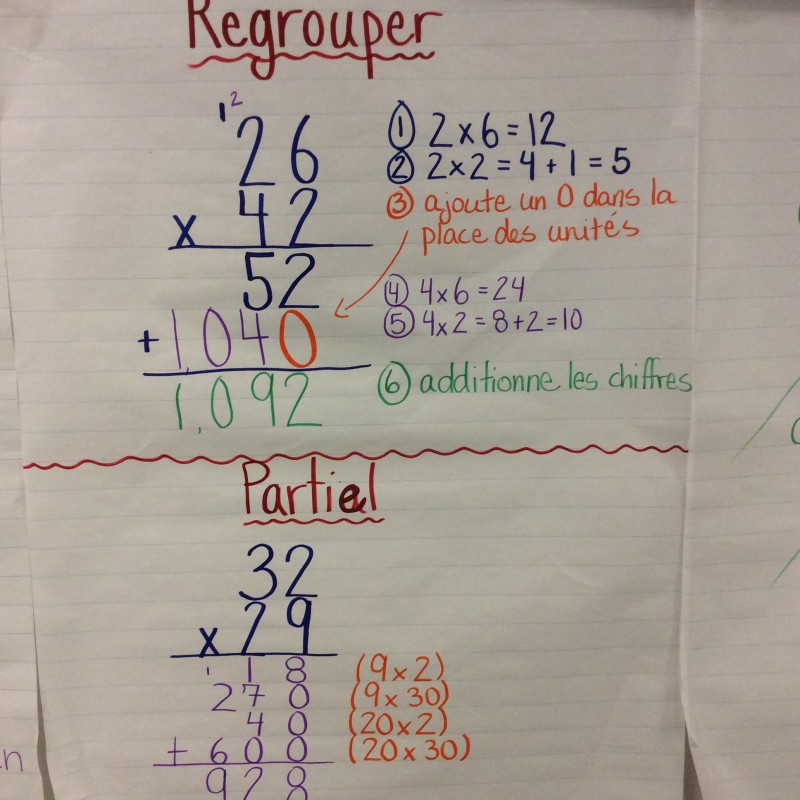 Regrouper
1 2
26
x 42
52
+ 1,040
1,092
① 2x6=12
② 2x2=4+1=5
③ ajoute un 0 dans la
place des unités
④ 4x6=24
⑤ 4x2=8+2=10
⑥ additionne les chiffres
Partiel
32
x 29
18 (9x2)
1
270 (9x30)
40 (20x2)
+ 600 (20x30)
928